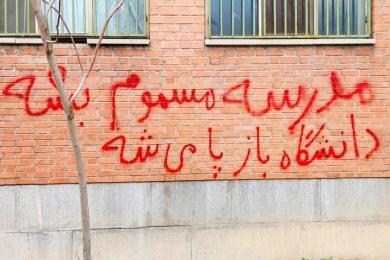 مدرسه مسموم بشه
دانشگاه باز پا می‌شه